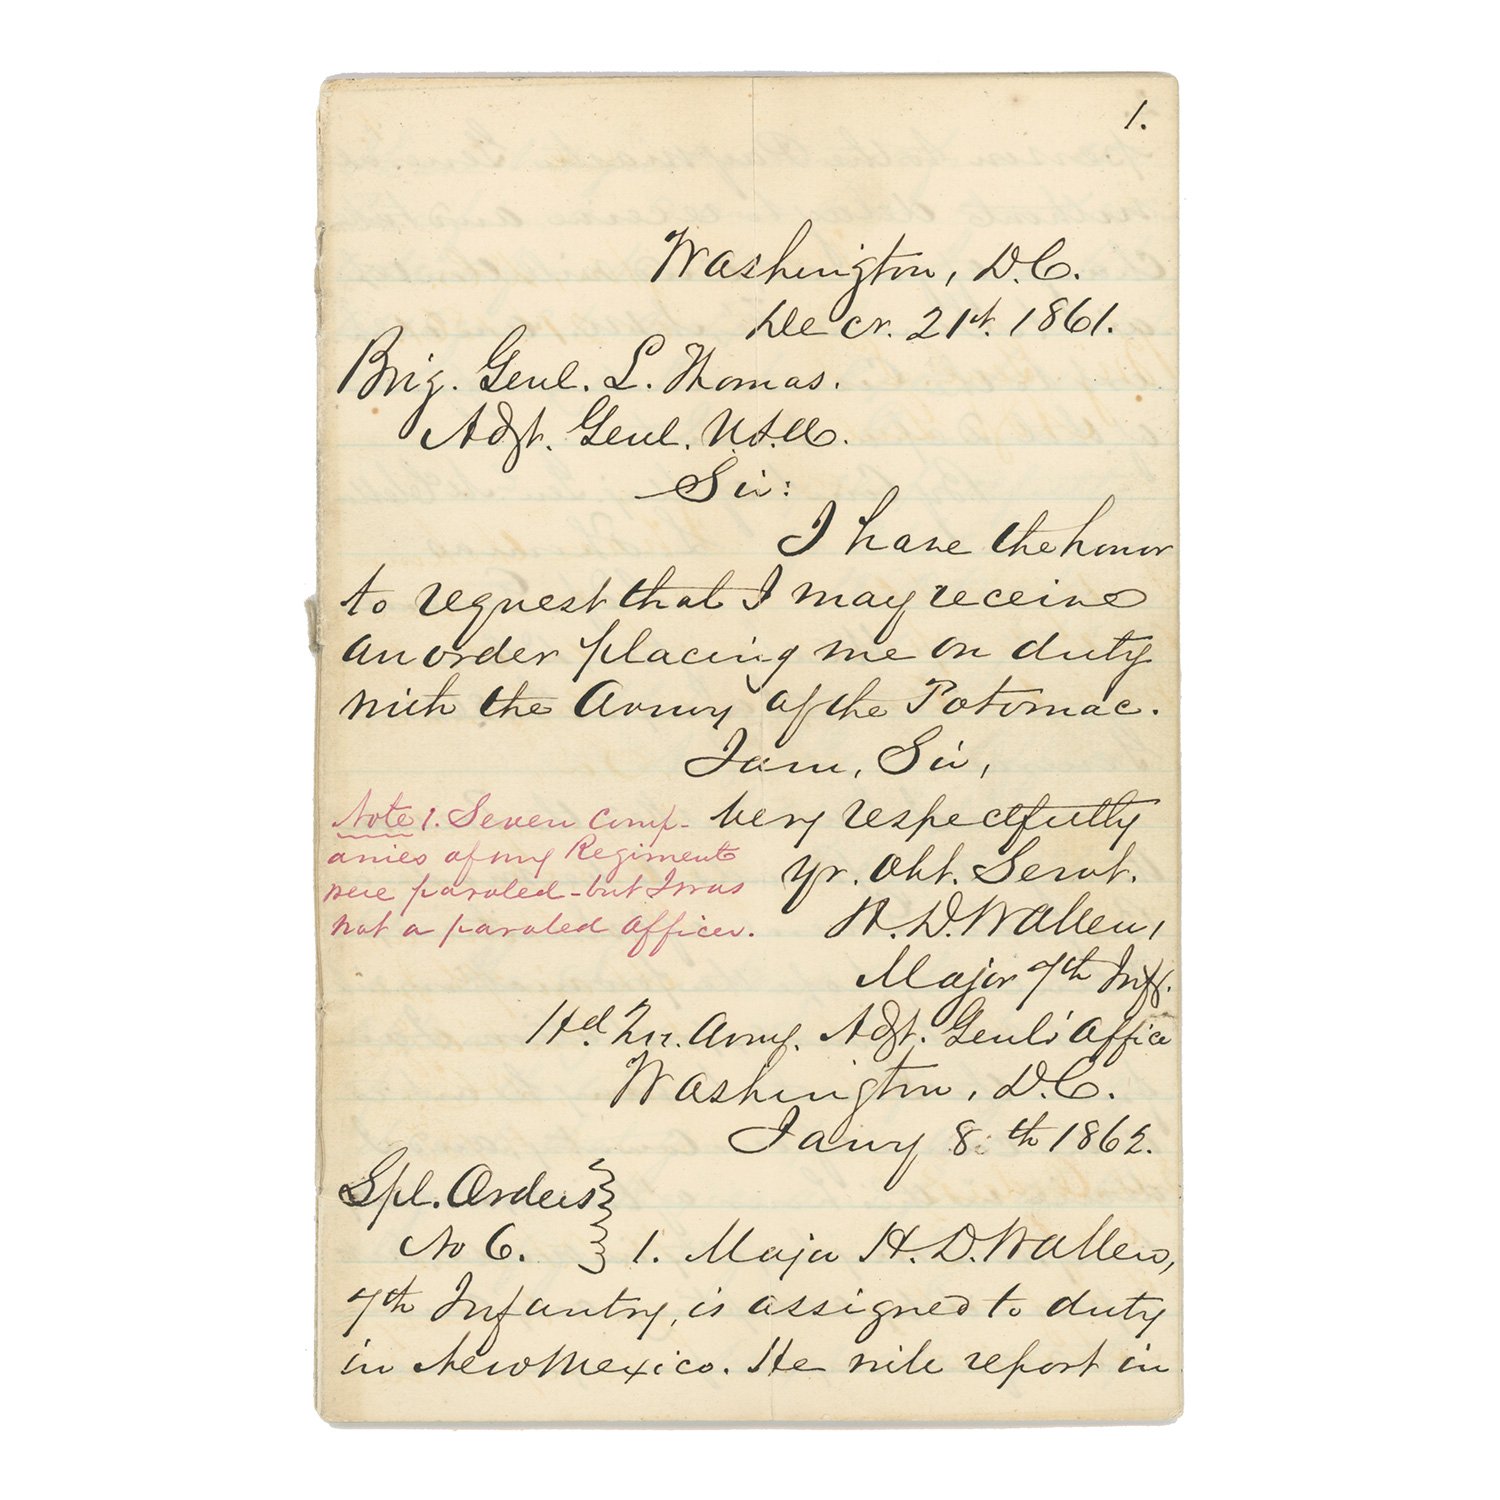 1.
Washington, D.C.
Decr. 21st. 1861.
Brig. Genl. L. Thomas.
Adjt. Genl. U.S.A.
Sir:
I have the honor
to request that I may receive
an order placing me on duty
with the Army of the Potomac.
I am, Sir,
Very respectfully
yr. Obt. Servt.
H. D. Wallen,
Major 7th Infy.
Note 1. Seven comp-
anies of my Regiment
were paroled - but I was
not a paroled officer.
Hd. Qrs. Army. Adjt. Genl's Office
Washington, D.C.
Jany 8th 1862.
Spl. Orders
No 6. 1. Major H. D. Wallen,
7th Infantry, is assigned to duty
in New Mexico. He will report in